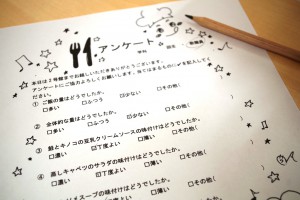 アンケート
学科 氏名
本日は2号館までお越しいただきありがとうございます。
アンケートにご協力よろしくお願いします。当てはまるものに✓を記入して
ください。
① ご飯の量はどうでしたか。
□多い □ふつう ☑少ない □その他(
② 全体的な量はどうでしたか。
□多い ☑ふつう □少ない □その他(
③ 鮭とキノコの豆乳クリームソースの味付けはどうでしたか。
□濃い ☑丁度よい □薄い □その他(
④ 蒸しキャベツのサラダの味付けはどうでしたか。
□濃い ☑丁度よい □薄い □その他( )
スープの味付けはどうでしたか。
丁度よい □薄い □その他(